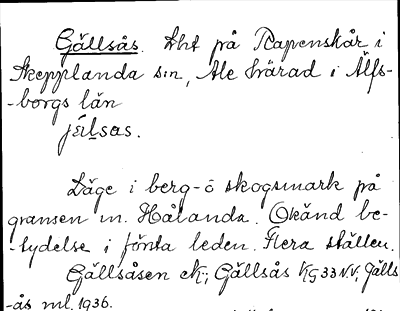 Gällsås. Lht på Rapenskår i
Skepplanda sn, Ale härad i Älfs-
-borgs län
jɛ́lsas.
Läge i berg- o skogsmark på
gränsen m. Hålanda. Okänd be-
-tydelse i första leden. Flera ställen.
Gällsåsen ek; Gällsås KG33NV; Gälls
-ås ml. 1936.